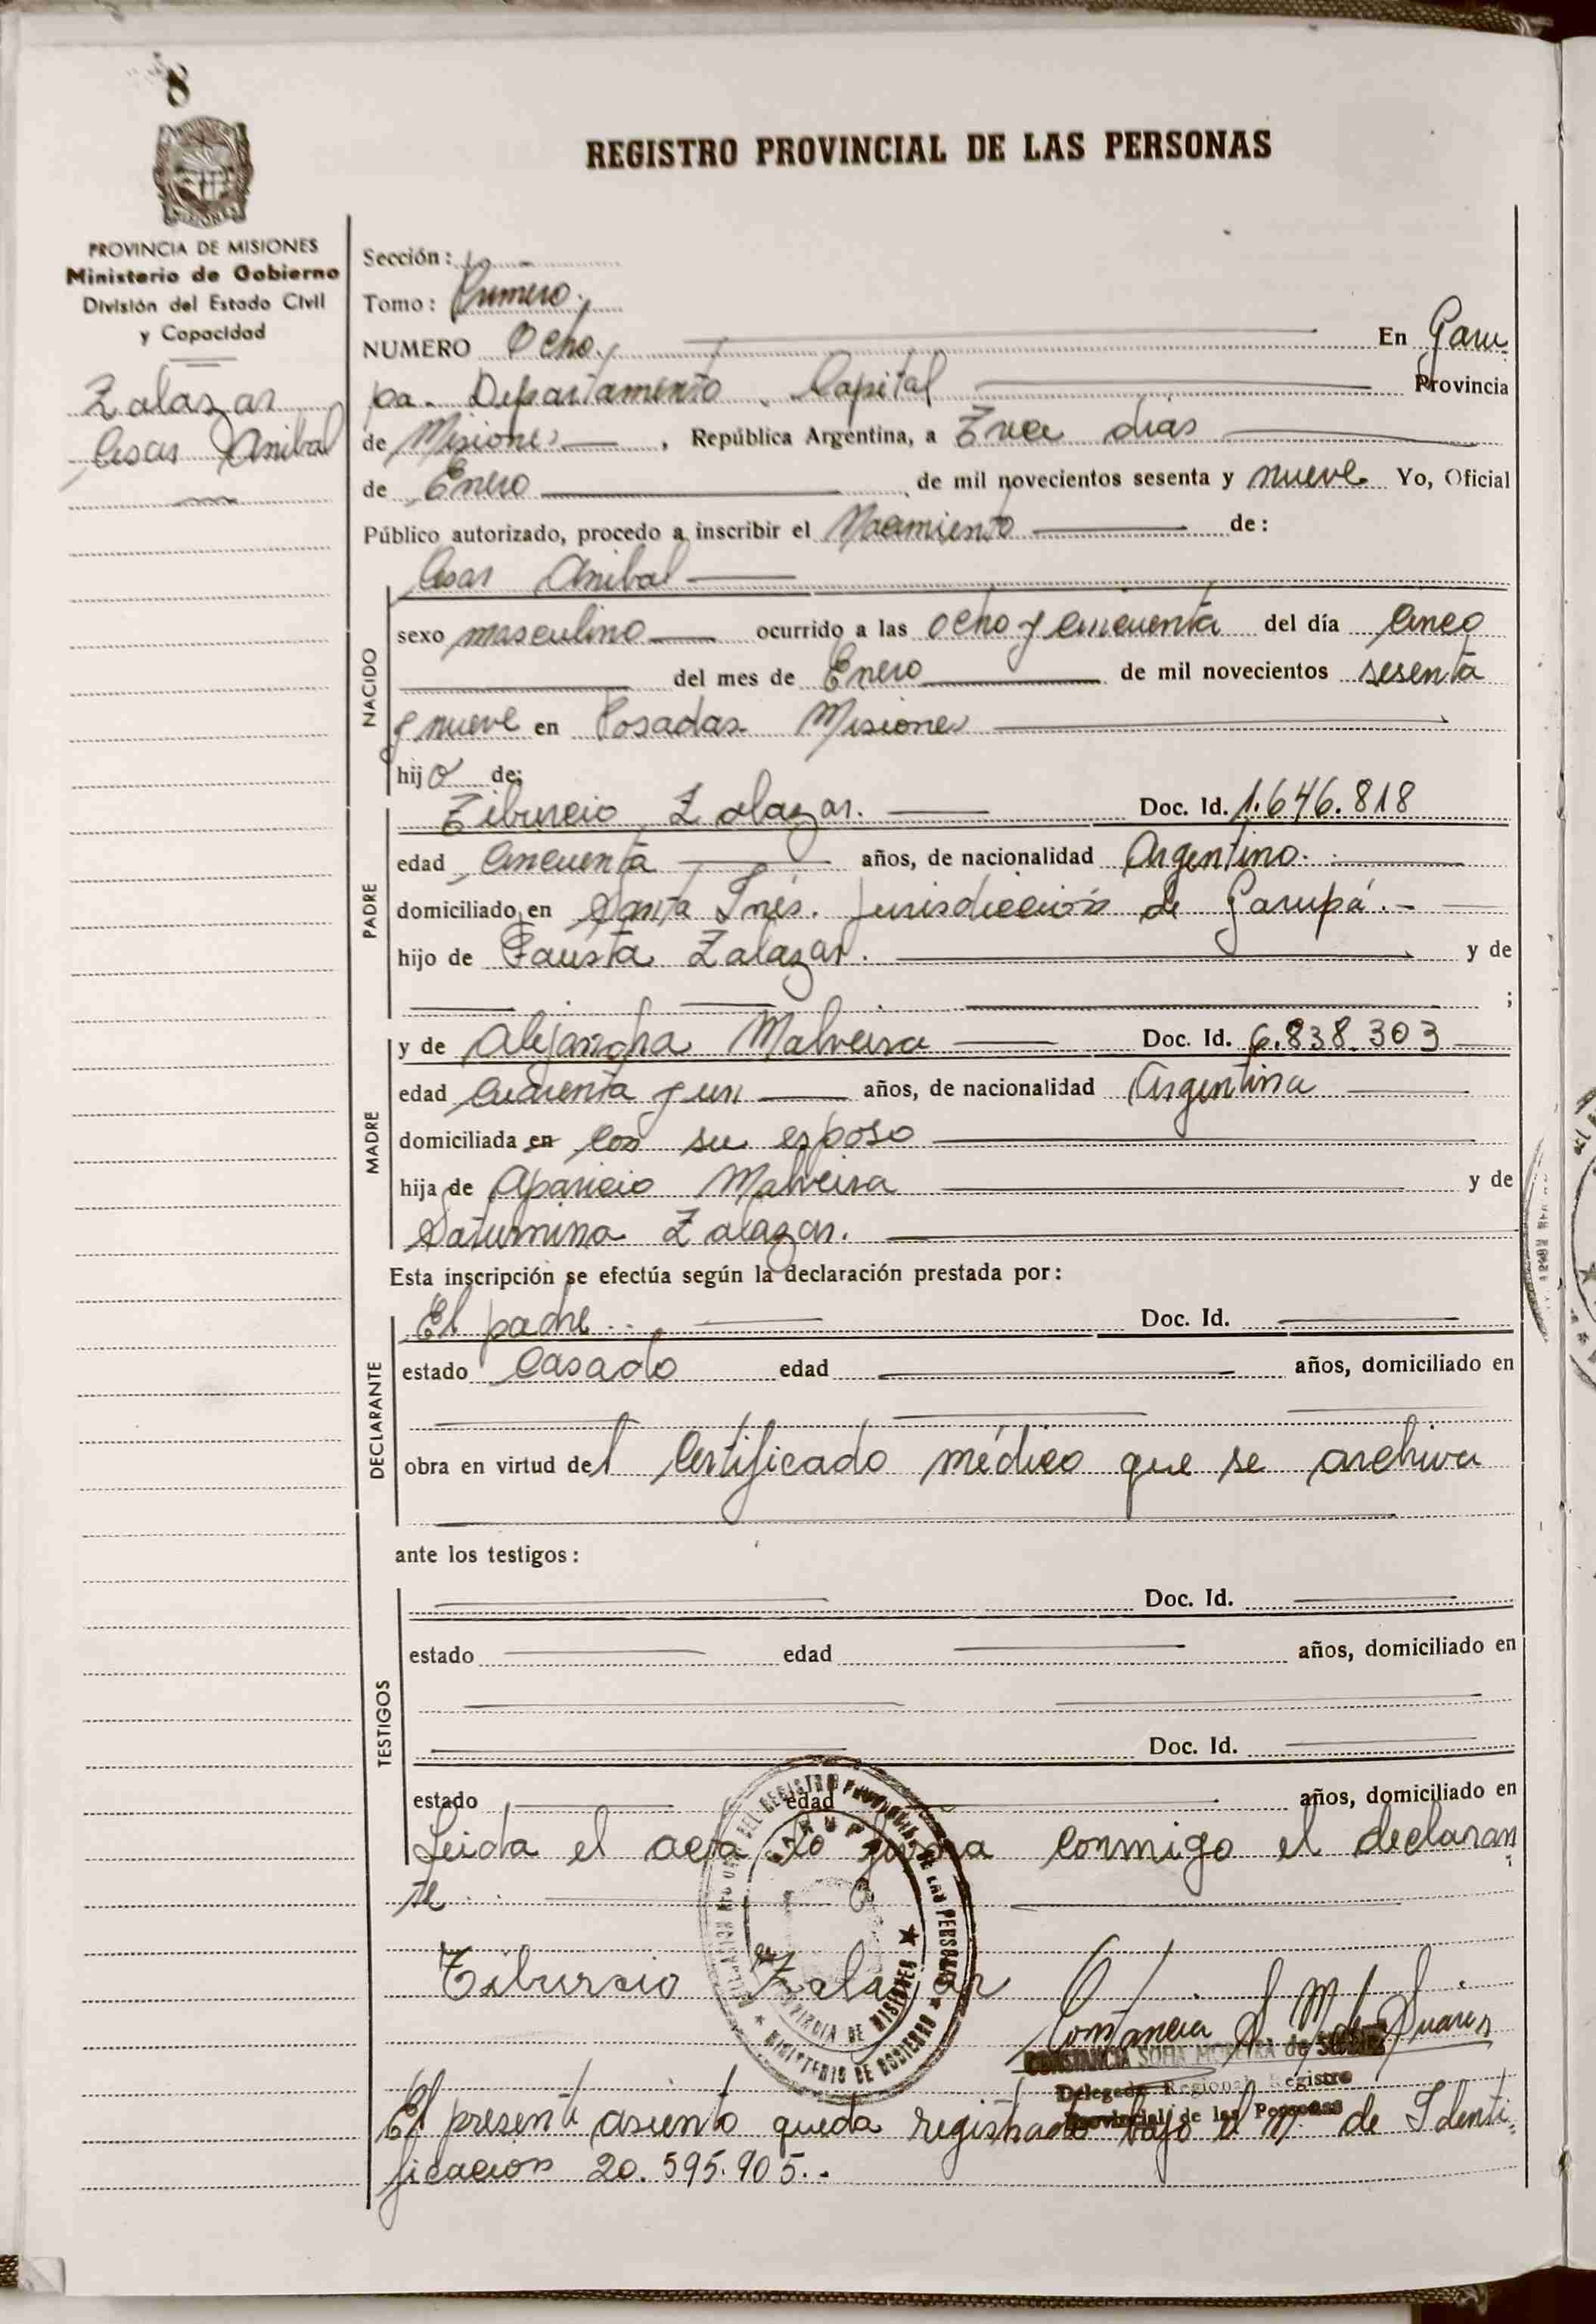 8
REGISTRO PROVINCIAL DE LAS PERSONAS
MISIONES
PROVINCIA DE MISIONES
Ministerio de Gobierno
División del Estado Civil
y Capacidad
Zalazar
Cesar Anibal
Sección: 1a
Tomo: Primero.
NUMERO Ocho. En Garu
pa. Departamento Capital Provincia
de Misiones, República Argentina, a Trece dias
de Enero de mil novecientos sesenta y nueve Yo, Oficial
Público autorizado, procedo a inscribir el Nacimiento de:
Cesar Anibal
NACIDO
sexo masculino ocurrido a las ocho y cincuenta del día cinco
del mes de Enero de mil novecientos sesenta
y nueve en Posadas Misiones
hijo de:
PADRE
Tiburcio Zalazar. Doc. Id. 1.646.818
edad cincuenta años, de nacionalidad Argentino.
domiciliado en Santa Inés. Jurisdiccion de Garupá.-
hijo de Fausta Zalazar. y de
;
MADRE
y de Alejandra Malveira Doc. Id. 6.838.303
edad cuarenta y un años, de nacionalidad Argentina
domiciliada en con su esposo
hija de Aparicio Malveira y de
Saturnina Zalazar.
Esta inscripción se efectúa según la declaración prestada por:
DECLARANTE
El padre.. Doc. Id.
estado Casado edad años, domiciliado en
obra en virtud del Certificado médico que se archiva
ante los testigos:
TESTIGOS
Doc. Id.
estado edad años, domiciliado en
Doc. Id.
estado edad años, domiciliado en
Leida el acta lo firma conmigo el declaran
te
Tiburcio Zalazar
Constancia S M de Suares
CONSTANCIA SOFIA MOREIRA de
Delegada Regional Registro
Provincial de las Personas
DEL REGISTRO PROVINCIAL DE LAS PERSONAS
GARUPA
PROVINCIA DE MISIONES
MINISTERIO DE GOBIERNO
El presente asiento queda registrado bajo el nº de Identi
ficacion 20.595.905..